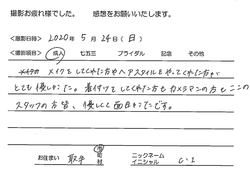 撮影お疲れ様でした。 感想をお願いいたします。
<撮影日時> 2020年 5月 24日 (日)
<撮影項目> 成人 七五三 ブライダル 記念 その他
メイクをしてくれた方やヘアスタイルをやってくれた方が
とても優しかった。着付けをしてくれた方もカメラマンの方もここの
スタッフの方皆、優しくて面白かったです。
お住まい 取手 市 町 村 ニックネーム イニシャル